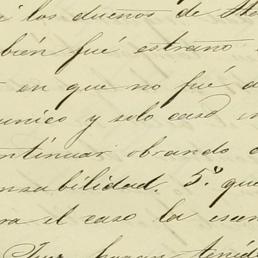 los dueños de
bién fué estraño
en que no fué a
unico y solo caso
ontinuar obrando
nsabilidad. 5.º que
ra el caso la
hayan tenid